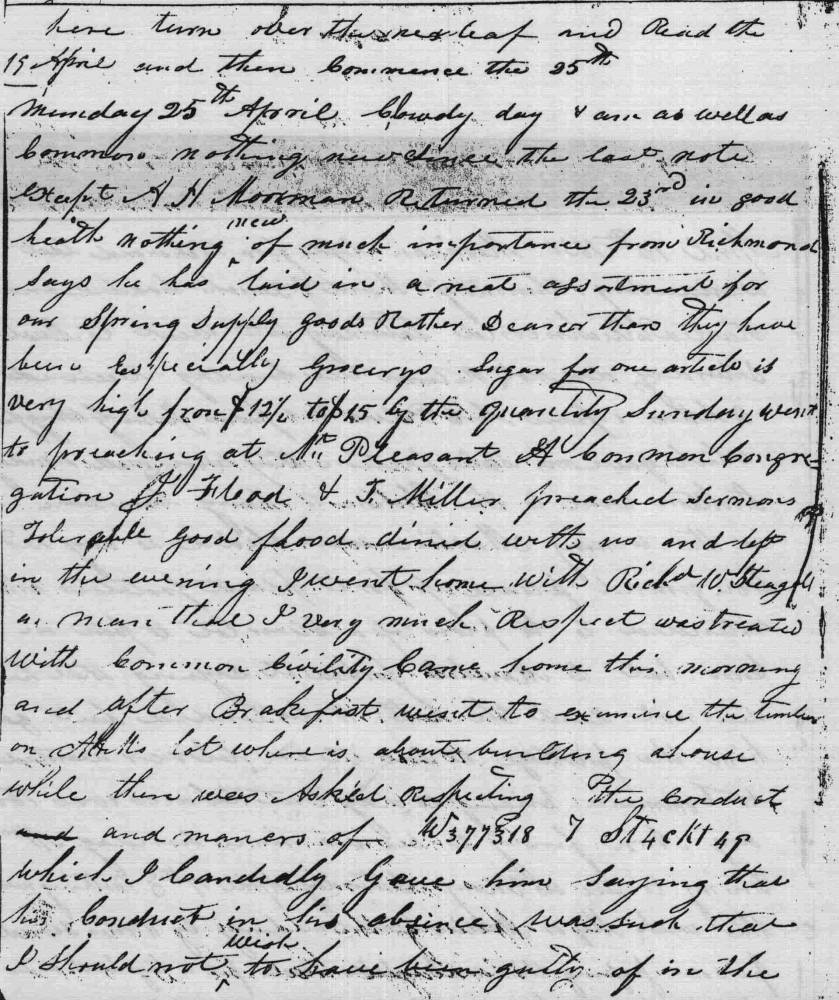 here turn over the nex leaf and Read the
19 April and then Commence the 25th
Munday 25th April Clowdy day & am as well as
Common nothing new since the last note
Except A H Moorman Returned the 23rd in good
heath nothing new of much importance from Richmond
Says he has laid in a neat assortment for
our Spring Supply goods Rather Dearer than they have
been Especially Grocerys Sugar for one article is
very high from $12½ to $15 by the quantity Sunday went
to preaching at Mt Pleasant A Common Congre-
gation J Flood & T Miller preached Sermons
Tolerable good flood dined with us and left
in the evening I went home with Richd W. Steagall
a man that I very much Respect was treated
with Common Civility Came home this morning
and after Brakefast went to examine the timber
on AHMs lot where is about building a house
while there was Asked Respecting the Conduct
and and maners of W377318 7 St4ckt49
which I Candedly Gave him saying that
his Conduct in his absence was such that
I should not wish to have been guilty of in the